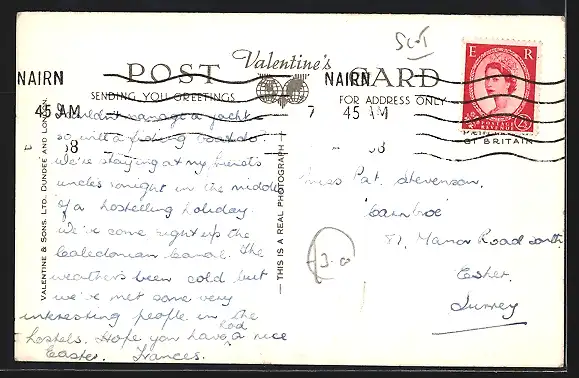 SCOT
Valentine's
POST CARD
SENDING YOU GREETINGS
FOR ADDRESS ONLY
NAIRN
45 AM
8
NAIRN
7 45 AM
8
E R
POSTAGE
REVENUE
2½
OF BRITAIN
VALENTINE & SONS. LTD. DUNDEE AND LONDON.
THIS IS A REAL PHOTOGRAPH
Couldn't manage a yacht
so will a fishing boat do?
We're staying at my friend's
uncles tonight in the middle
of a hostelling holiday.
We've come right up the
Caledonian Canal. The
weather's been cold but
we've met some very
interesting people in the
hostels. Hope you have had a nice
Easter. Frances.
Miss Pat. Stevenson,
'Cairnbroe'
87, Manor Road South
Esher,
Surrey
£3.00